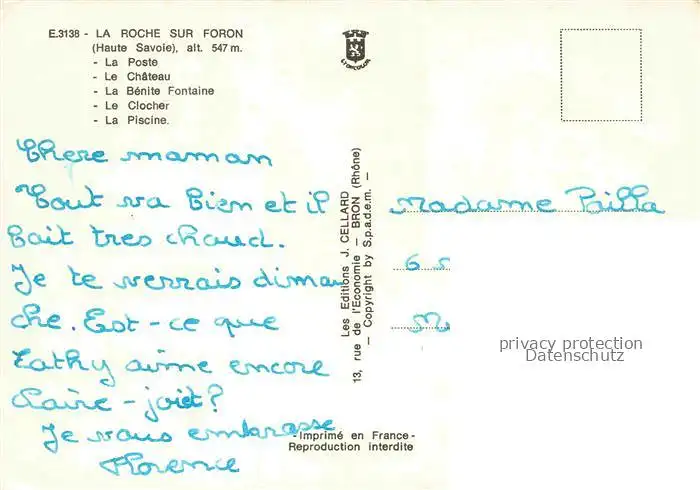 E.3138 - LA ROCHE SUR FORON
(Haute Savoie), alt. 547 m.
- La Poste
- Le Château
- La Bénite Fontaine
- Le Clocher
- La Piscine.
LYONCOLOR
Chere maman
Tout va bien et il
fait tres chaud.
Je te verrais diman
che. Est-ce que
Cathy aime encore
Claire - joie?
Je vous embrasse
Florence
Les Editions J. CELLARD
13, rue de l'Economie - BRON (Rhône)
- Copyright by S.p.a.d.e.m. -
Madame Pailla
6
privacy protection
Datenschutz
-Imprimé en France-
Reproduction interdite